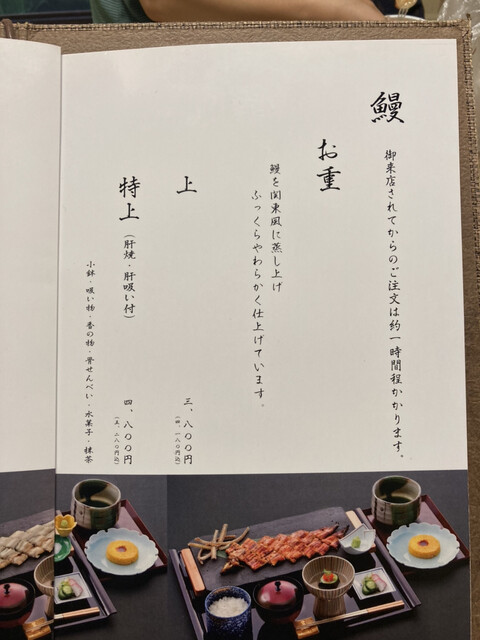 鰻
御来店されてからのご注文は約一時間程かかります。
お重
鰻を関東風に蒸し上げ
ふっくらやわらかく仕上げています。
上
三、八〇〇円
(四、一八〇円込)
特上(肝焼・肝吸い付)
四、八〇〇円
(五、二八〇円込)
小鉢・吸い物・香の物・骨せんべい・水菓子・抹茶